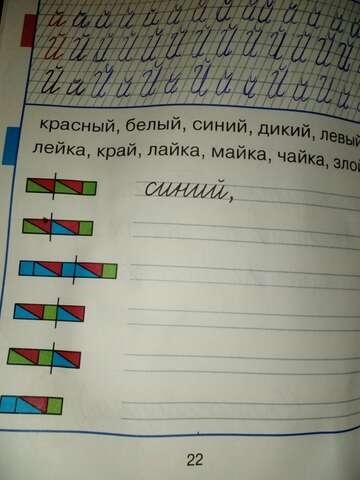 й й й й й й й й й й й й
Й Й Й Й Й Й Й Й Й Й
Йй Йй Йй Йй Йй Йй
красный, белый, синий, дикий, левый
лейка, край, лайка, майка, чайка, злой
синий,
22